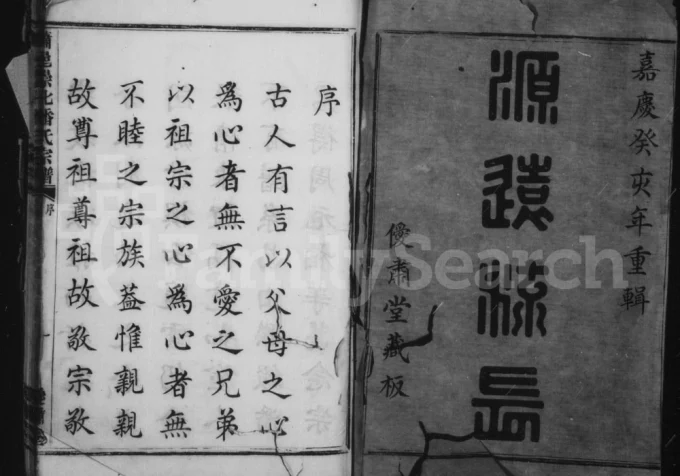 嘉慶癸亥年重輯
源遠流長
優肅堂藏板
序
古人有言以父母之心
為心者無不愛之兄弟
以祖宗之心為心者無
不睦之宗族葢惟親親
故尊祖尊祖故敬宗敬
潘氏宗譜
序
FamilySearch